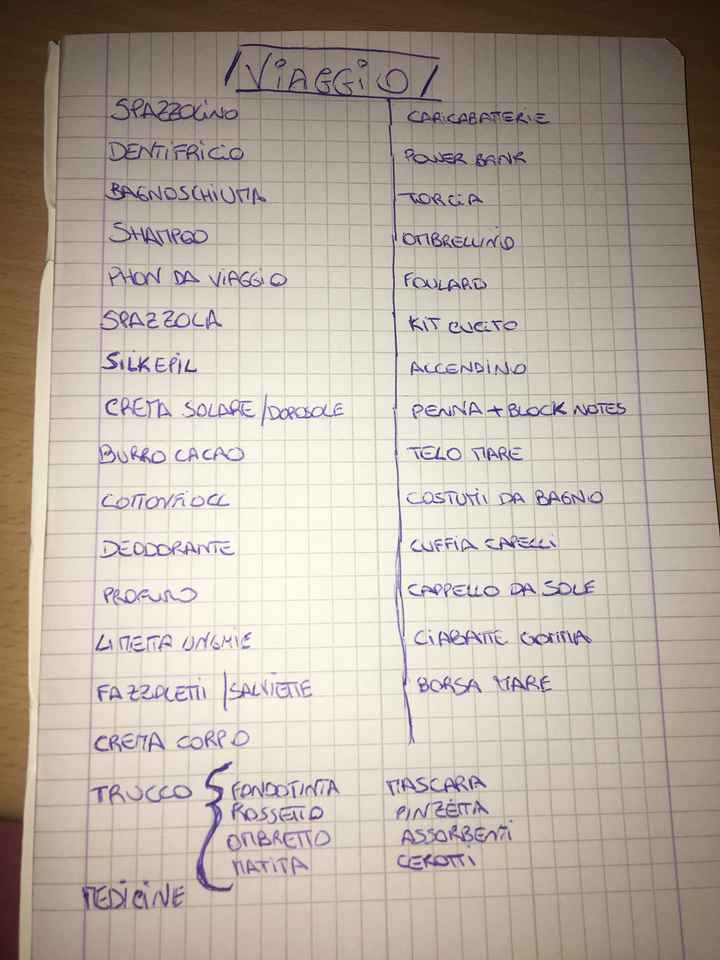 VIAGGIO
SPAZZOLINO
DENTIFRICIO
BAGNOSCHIUMA
SHAMPOO
PHON DA VIAGGIO
SPAZZOLA
SILKEPIL
CREMA SOLARE / DOPOSOLE
BURRO CACAO
COTTONFIOCC
DEODORANTE
PROFUMO
LIMETTA UNGHIE
FAZZOLETTI / SALVIETTE
CREMA CORPO
CARICABATTERIE
POWER BANK
TORCIA
OMBRELLINO
FOULARD
KIT CUCITO
ACCENDINO
PENNA + BLOCK NOTES
TELO MARE
COSTUMI DA BAGNO
CUFFIA CAPELLI
CAPPELLO DA SOLE
CIABATTE GOMMA
BORSA MARE
TRUCCO { FONDOTINTA MASCARA
ROSSETTO PINZETTA
OMBRETTO ASSORBENTI
MATITA CEROTTI
MEDICINE